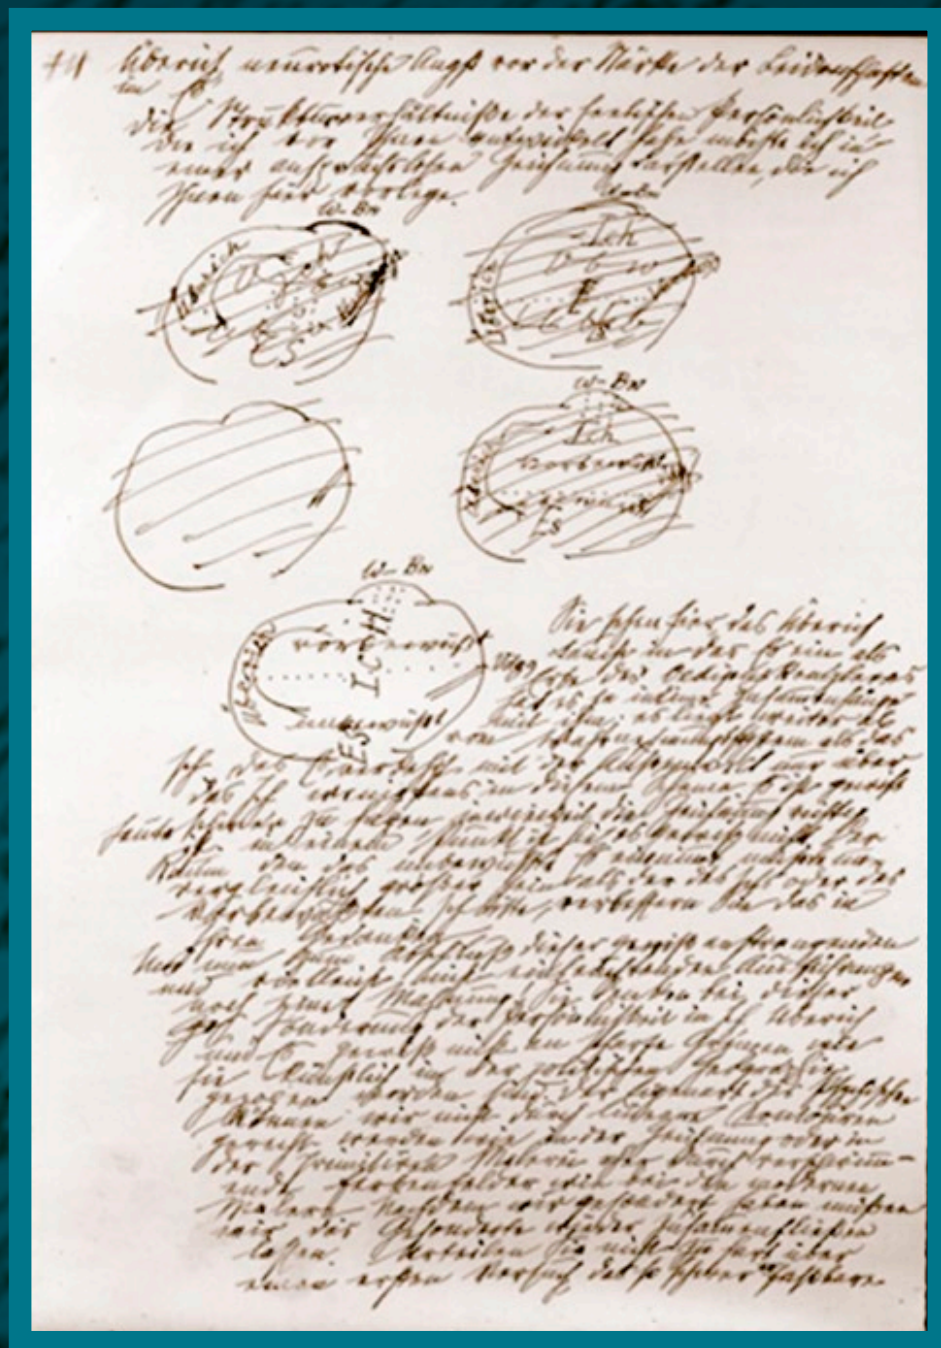 Überich neurotische Angst vor der Stärke der Leidenschaften
im Es
Die Strukturverhältniße der seelischen Persönlichkeit
die ich vor Ihnen entwickelt habe möchte ich in
einer anspruchslosen Zeichnung darstellen, die ich
Ihnen hier vorlege.
W-Bw
Überich
Ich
Es
Ich
vbw
Überich
W-Bw
Ich
vorbewußt
Überich
unbewußt
Es
W-Bw
vorbewußt
ICH
Überich
unbewußt
ES
Sie sehen hier das Überich
taucht in das Es ein als
Erbe des Oedipuskomplexes
hat es ja intime Zusammenhänge
mit ihm; es liegt weiter ab
vom Wahrnehmungssystem als das
Ich. Das Es verkehrt mit der Außenwelt nur über
das Ich wenigstens in diesem Schema. Es ist gewiß
heute schwer zu sagen inwieweit die Zeichnung richtig
ist in einem Punkt ist sie es gewiß nicht. Der
Raum den das unbewußte Es einnimmt müßte un-
vergleichlich größer sein als der des Ichs oder des
Vorbewußten. Ich bitte, verbessern Sie das in
Ihren Gedanken.
Und nun zum Abschluß dieser gewiß anstrengenden
und vielleicht nicht einleuchtenden Ausführungen
noch eine Mahnung! Sie denken bei dieser
Sonderung der Persönlichkeit in Ich Überich
und Es gewiß nicht an scharfe Grenzen wie
sie künstlich in der politischen Geographie
gezogen worden sind. Der Eigenart des Psychischen
können wir nicht durch lineare Konturen
gerecht werden wie in der Zeichnung oder in
der primitiven Malerei eher durch verschwim-
mende Farbenfelder wie bei den modernen
Malern. Nachdem wir gesondert haben müßen
wir das Gesonderte wieder zusammenfließen
laßen. Urteilen Sie nicht zu hart über
einen ersten Versuch das so schwer faßbare